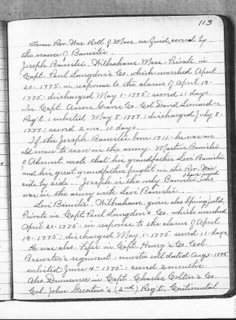 113
From Rev. War Rolls of Mass. in Guild, serial by
the name of Bancister.
Joseph Bancister, Wilbraham, Mass. Private in
Capt. Paul Langdon's Co. which marched April
20, 1775, in response to the alarm of April 19,
1775; discharged May 1, 1775; served 11 days
in Capt. Co. Col. David
Regt.; enlisted May 8, 1777; discharged July 8,
1777; served 2 mo. 10 days.
If the Joseph Bancister born 1711, he was no
old man to serve in the army. Martin Bancister
of Vermont said that his grandfather Levi Bancister
and his great grandfather fought in the Rev. War
side by side. Joseph is the only Bancister
was in the army with Levi Bancister.
Levi Bancister. Wilbraham, given also Springfield
Private in Capt. Paul Langdon's Co. which marched
April 20, 1775, in response to the alarm of April
19, 1775; discharged May 1, 1775; served 11 days.
He was also Fifer in Capt. Co. Col.
Brewster's regiment; muster roll dated Aug. 1775
enlisted June 4, 1775; served 2 months
Also Drummer in Capt. Charles Colton's Co.
Col. John Greaton's (2nd) Regt. Continental